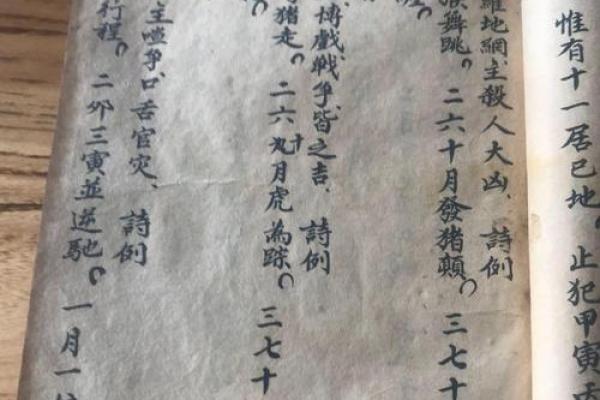 惟有十一居巳地。止犯甲寅
羅地網、主殺人大凶、詩例
舞跳。二六十月發猪顛。三七十
博戲、戰爭、皆之吉、詩例
猪走。二六九十月虎為踪。三七十
主喧争、口舌官灾、詩例
行程。二卯三寅並逆馳。一月一